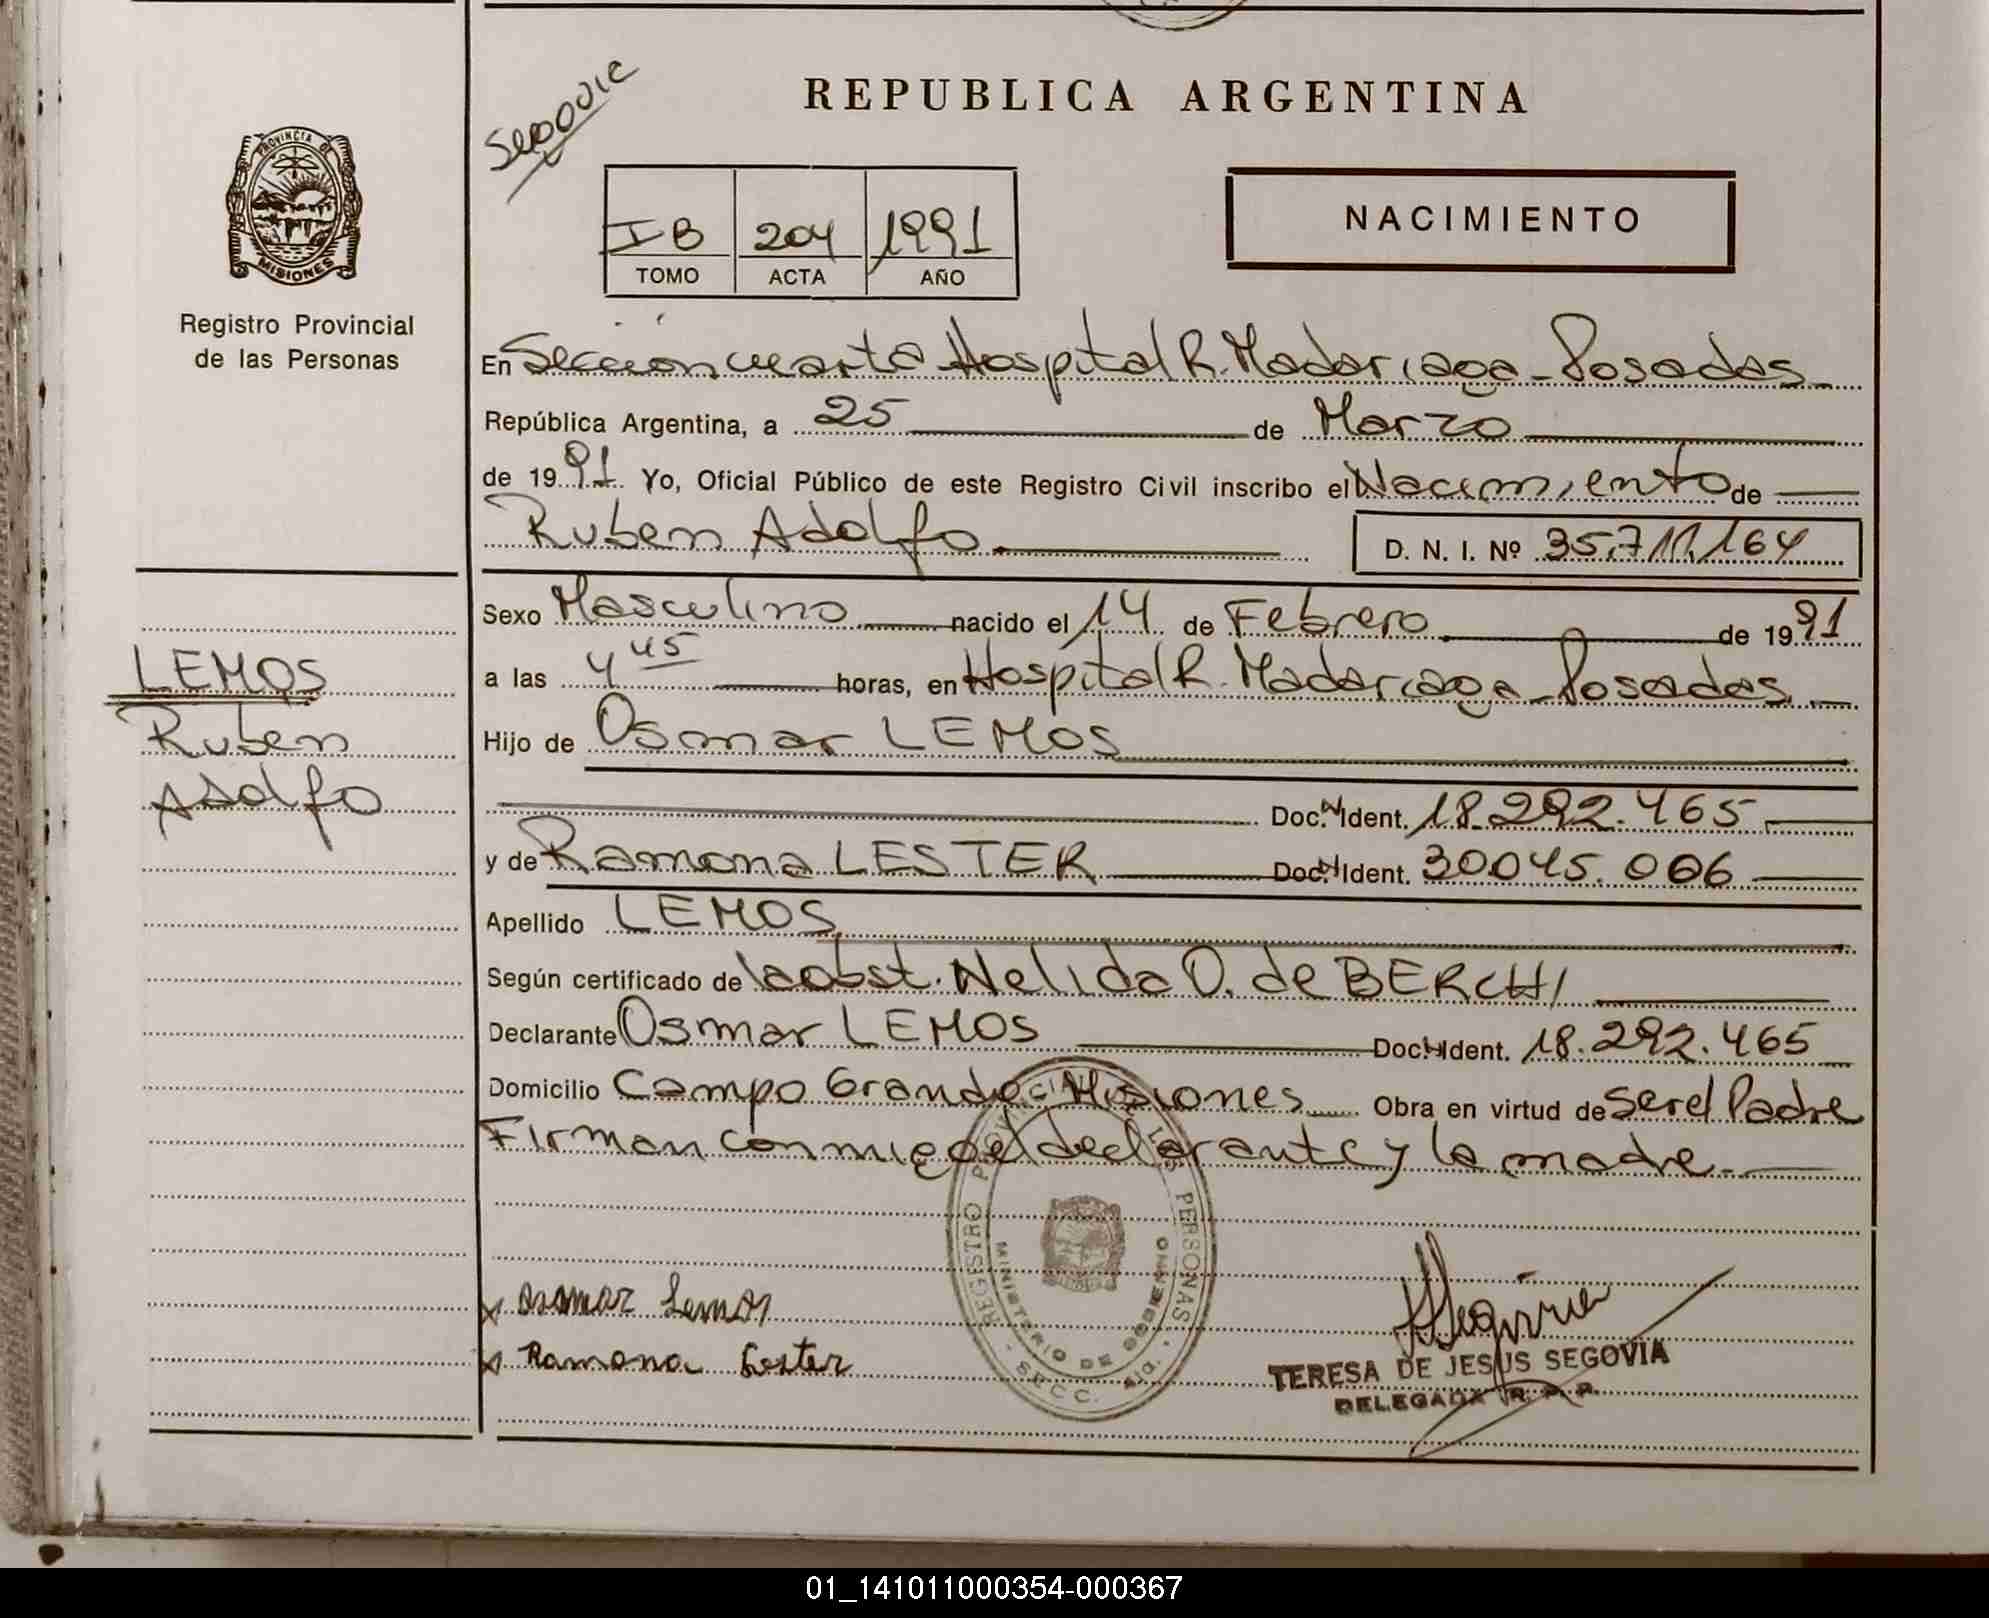 REPUBLICA ARGENTINA
NACIMIENTO
IB 204 1991
TOMO ACTA AÑO
PROVINCIA DE
MISIONES
Registro Provincial
de las Personas
En Sección cuarta Hospital R. Madariaga - Posadas
República Argentina, a 25 de Marzo
de 1991 Yo, Oficial Público de este Registro Civil inscribo el Nacimiento de
Ruben Adolfo D. N. I. Nº 35.711.164
Sexo Masculino nacido el 14 de Febrero de 1991
a las 4 45 horas, en Hospital R. Madariaga - Posadas
Hijo de Osmar LEMOS
Doc. Ident. 18.292.465
y de Ramona LESTER Doc. Ident. 30045.006
Apellido LEMOS
Según certificado de la obst. Nelida O. de BERCHI
Declarante Osmar LEMOS Doc. Ident. 18.292.465
Domicilio Campo Grande Misiones Obra en virtud de ser el Padre
Firman conmigo el declarante y la madre
LEMOS
Ruben
Adolfo
x Osmar Lemos
x Ramona Lester
REGISTRO PROVINCIAL DE LAS PERSONAS
MINISTERIO DE GOBIERNO
SECC. 4ta.
TERESA DE JESUS SEGOVIA
DELEGADA R. P. P.
01_141011000354-000367